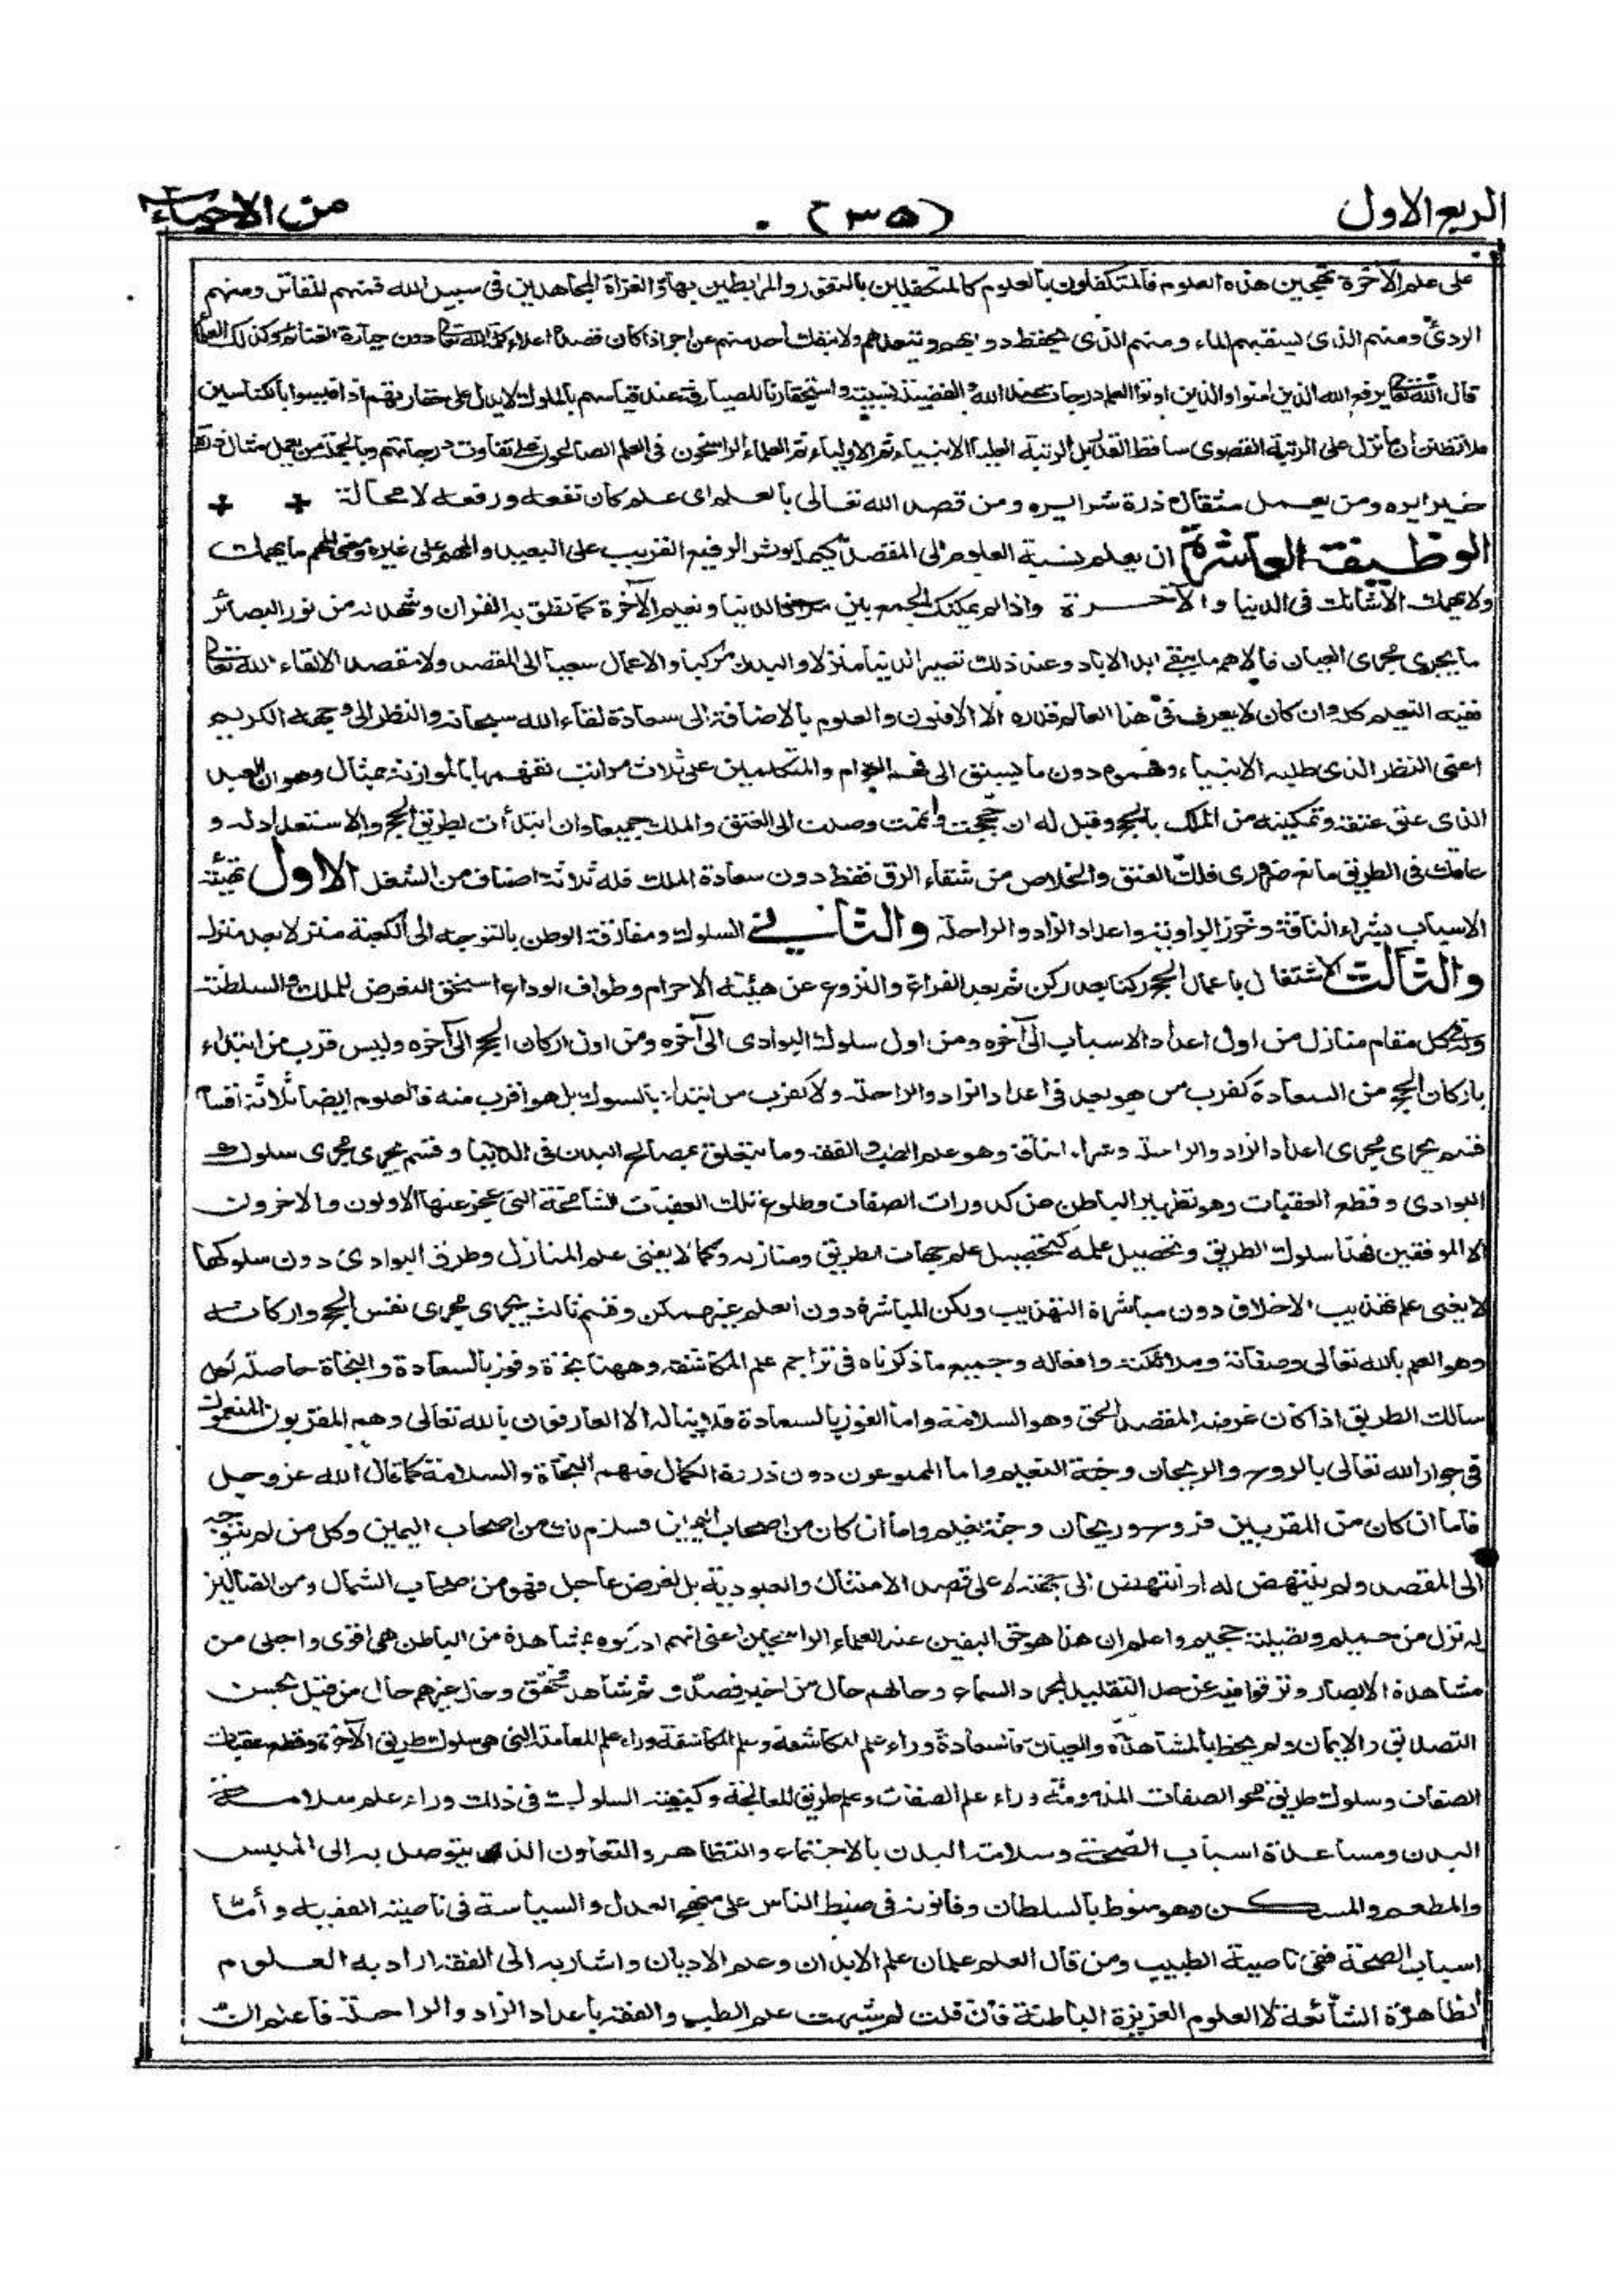 الربع الاول (٣٥) من الاحياء
على علم الآخرة تهجين هذه العلوم فالمتكفلون بالعلوم كالمتكفلين بالثغور والمرابطين بها والغزاة المجاهدين فى سبيل الله فمنهم المقاتل ومنهم
الردئ ومنهم الذى يسقيهم الماء ومنهم الذى يحفظ دوابهم ويتعهدهم ولا ينفك احد منهم عن اجر اذا كان قصده اعلاء كلمة الله تعالى دون حيازة الغنائم وكذلك العلماء
قال الله تعالى يرفع الله الذين امنوا والذين اوتوا العلم درجات هم درجات عند الله والفضيلة نسبية واستحقارنا للصيارفة عند قياسهم بالملوك لا يدل على حقارتهم اذا قيسوا بالكناسين
فلا تظنن أن ما نزل عن الرتبة القصوى ساقط القدر بل الرتبة العليا للانبياء ثم الاولياء ثم العلماء الراسخون فى العلم ثم الصالحون على تفاوت درجاتهم وبالجملة من يعمل مثقال ذرة
خيرا يره ومن يعمل مثقال ذرة شرا يره ومن قصد الله تعالى بالعلم اى علم كان نفعه ورفعه لا محالة
الوظيفة العاشرة ان يعلم نسبة العلوم الى المقصد كيما يوثر الرفيع القريب على البعيد والمهم على غيره ومعنى المهم ما يهمك
ولا يهمك الا شانك فى الدنيا والآخرة واذا لم يمكنك الجمع بين ملاذ الدنيا ونعيم الآخرة كما نطق به القران وشهد له من نور البصائر
ما يجرى مجرى العيان فالاهم ما يبقى ابد الاباد وعند ذلك تصير الدنيا منزلا والبدن مركبا والاعمال سعيا الى المقصد ولا مقصد الا لقاء الله تعالى
ففيه النعيم كله وان كان لا يعرف فى هذا العالم قدره الا الاقلون والعلوم بالاضافة الى سعادة لقاء الله سبحانه والنظر الى وجهه الكريم
اعنى النظر الذى طلبه الانبياء وفهموه دون ما يسبق الى فهم العوام والمتكلمين على ثلاث مراتب تفهمها بالموازنة بمثال وهو ان العبد
الذى علق عتقه وتمكينه من الملك بالحج وقيل له ان حججت واتممت وصلت الى العتق والملك جميعا وان ابتدأت بطريق الحج والاستعداد له و
عاقك فى الطريق مانع ضرورى فلك العتق والخلاص من شقاء الرق فقط دون سعادة الملك فله ثلاثة اصناف من الشغل الاول تهيئة
الاسباب بشراء الناقة وخرز الراوية واعداد الزاد والراحلة والثانى السلوك ومفارقة الوطن بالتوجه الى الكعبة منزلا بعد منزل
والثالث الاشتغال باعمال الحج ركنا بعد ركن ثم بعد الفراغ والنزوع عن هيئة الاحرام وطواف الوداع استحق التعرض للملك والسلطنة
وله فى كل مقام منازل من اول اعداد الاسباب الى آخره ومن اول سلوك البوادى الى آخره ومن اول اركان الحج الى آخره وليس قرب من ابتداء
باركان الحج من السعادة كقرب من هو بعد فى اعداد الزاد والراحلة ولا كقرب من ابتداء بالسلوك بل هو اقرب منه فالعلوم ايضا ثلاثة اقسام
قسم يجرى مجرى اعداد الزاد والراحلة وشراء الناقة وهو علم الطب والفقه وما يتعلق بمصالح البدن فى الدنيا وقسم يجرى مجرى سلوك
البوادى وقطع العقبات وهو تطهير الباطن عن كدورات الصفات وطلوع تلك العقبات الشامخة التى عجز عنها الاولون والاخرون
الا الموفقين فهذا سلوك الطريق وتحصيل علمه كتحصيل علم جهات الطريق ومنازله وكما لا يغنى علم المنازل وطرق البوادى دون سلوكها
لا يغنى علم تهذيب الاخلاق دون مباشرة التهذيب ولكن المباشرة دون العلم غير ممكن وقسم ثالث يجرى مجرى نفس الحج واركانه
وهو العلم بالله تعالى وصفاته وملائكته وافعاله وجميع ما ذكرناه فى تراجم علم المكاشفة وههنا نجاة وفوز بالسعادة والنجاة حاصلة لكل
سالك الطريق اذا كان غرضه المقصد الحق وهو السلامة واما الفوز بالسعادة فلا يناله الا العارفون بالله تعالى وهم المقربون المنعمون
فى جوار الله تعالى بالروح والريحان وجنة النعيم واما الممنوعون دون ذروة الكمال فلهم النجاة والسلامة كما قال الله عز وجل
فاما ان كان من المقربين فروح وريحان وجنة نعيم واما ان كان من اصحاب اليمين فسلام لك من اصحاب اليمين وكل من لم يتوجه
الى المقصد ولم ينتهض له او انتهض الى جهته لا على قصد الامتثال والعبودية بل لغرض عاجل فهو من اصحاب الشمال ومن الضالين
له نزل من حميم وتصلية جحيم واعلم ان هذا هو حق اليقين عند العلماء الراسخين اعنى انهم ادركوه بمشاهدة من الباطن هى اقوى واجلى من
مشاهدة الابصار وترقوا فيه عن حد التقليد لمجرد السماع وحالهم حال من اخبر فصدق ثم شاهد فحقق وحال غيرهم حال من قبل بحسن
التصديق والايمان ولم يحظ بالمشاهدة والعيان فالسعادة وراء علم المكاشفة وعلم المكاشفة وراء علم المعاملة التى هى سلوك طريق الآخرة وقطع عقبات
الصفات وسلوك طريق محو الصفات المذمومة وراء علم الصفات وعلم طريق المعالجة وكيفية السلوك فى ذلك وراء علم سلامة
البدن ومساعدة اسباب الصحة وسلامة البدن بالاجتماع والتظاهر والتعاون الذى يتوصل به الى الملبس
والمطعم والمسكن وهو منوط بالسلطان وقانونه فى ضبط الناس على منهج العدل والسياسة فى ناصية الفقيه وأما
اسباب الصحة ففى ناصية الطبيب ومن قال العلم علمان علم الابدان وعلم الاديان واشار به الى الفقه اراد به العلوم
الظاهرة الشائعة لا العلوم العزيزة الباطنة فان قلت لم شبهت علم الطب والفقه باعداد الزاد والراحلة فاعلم ان